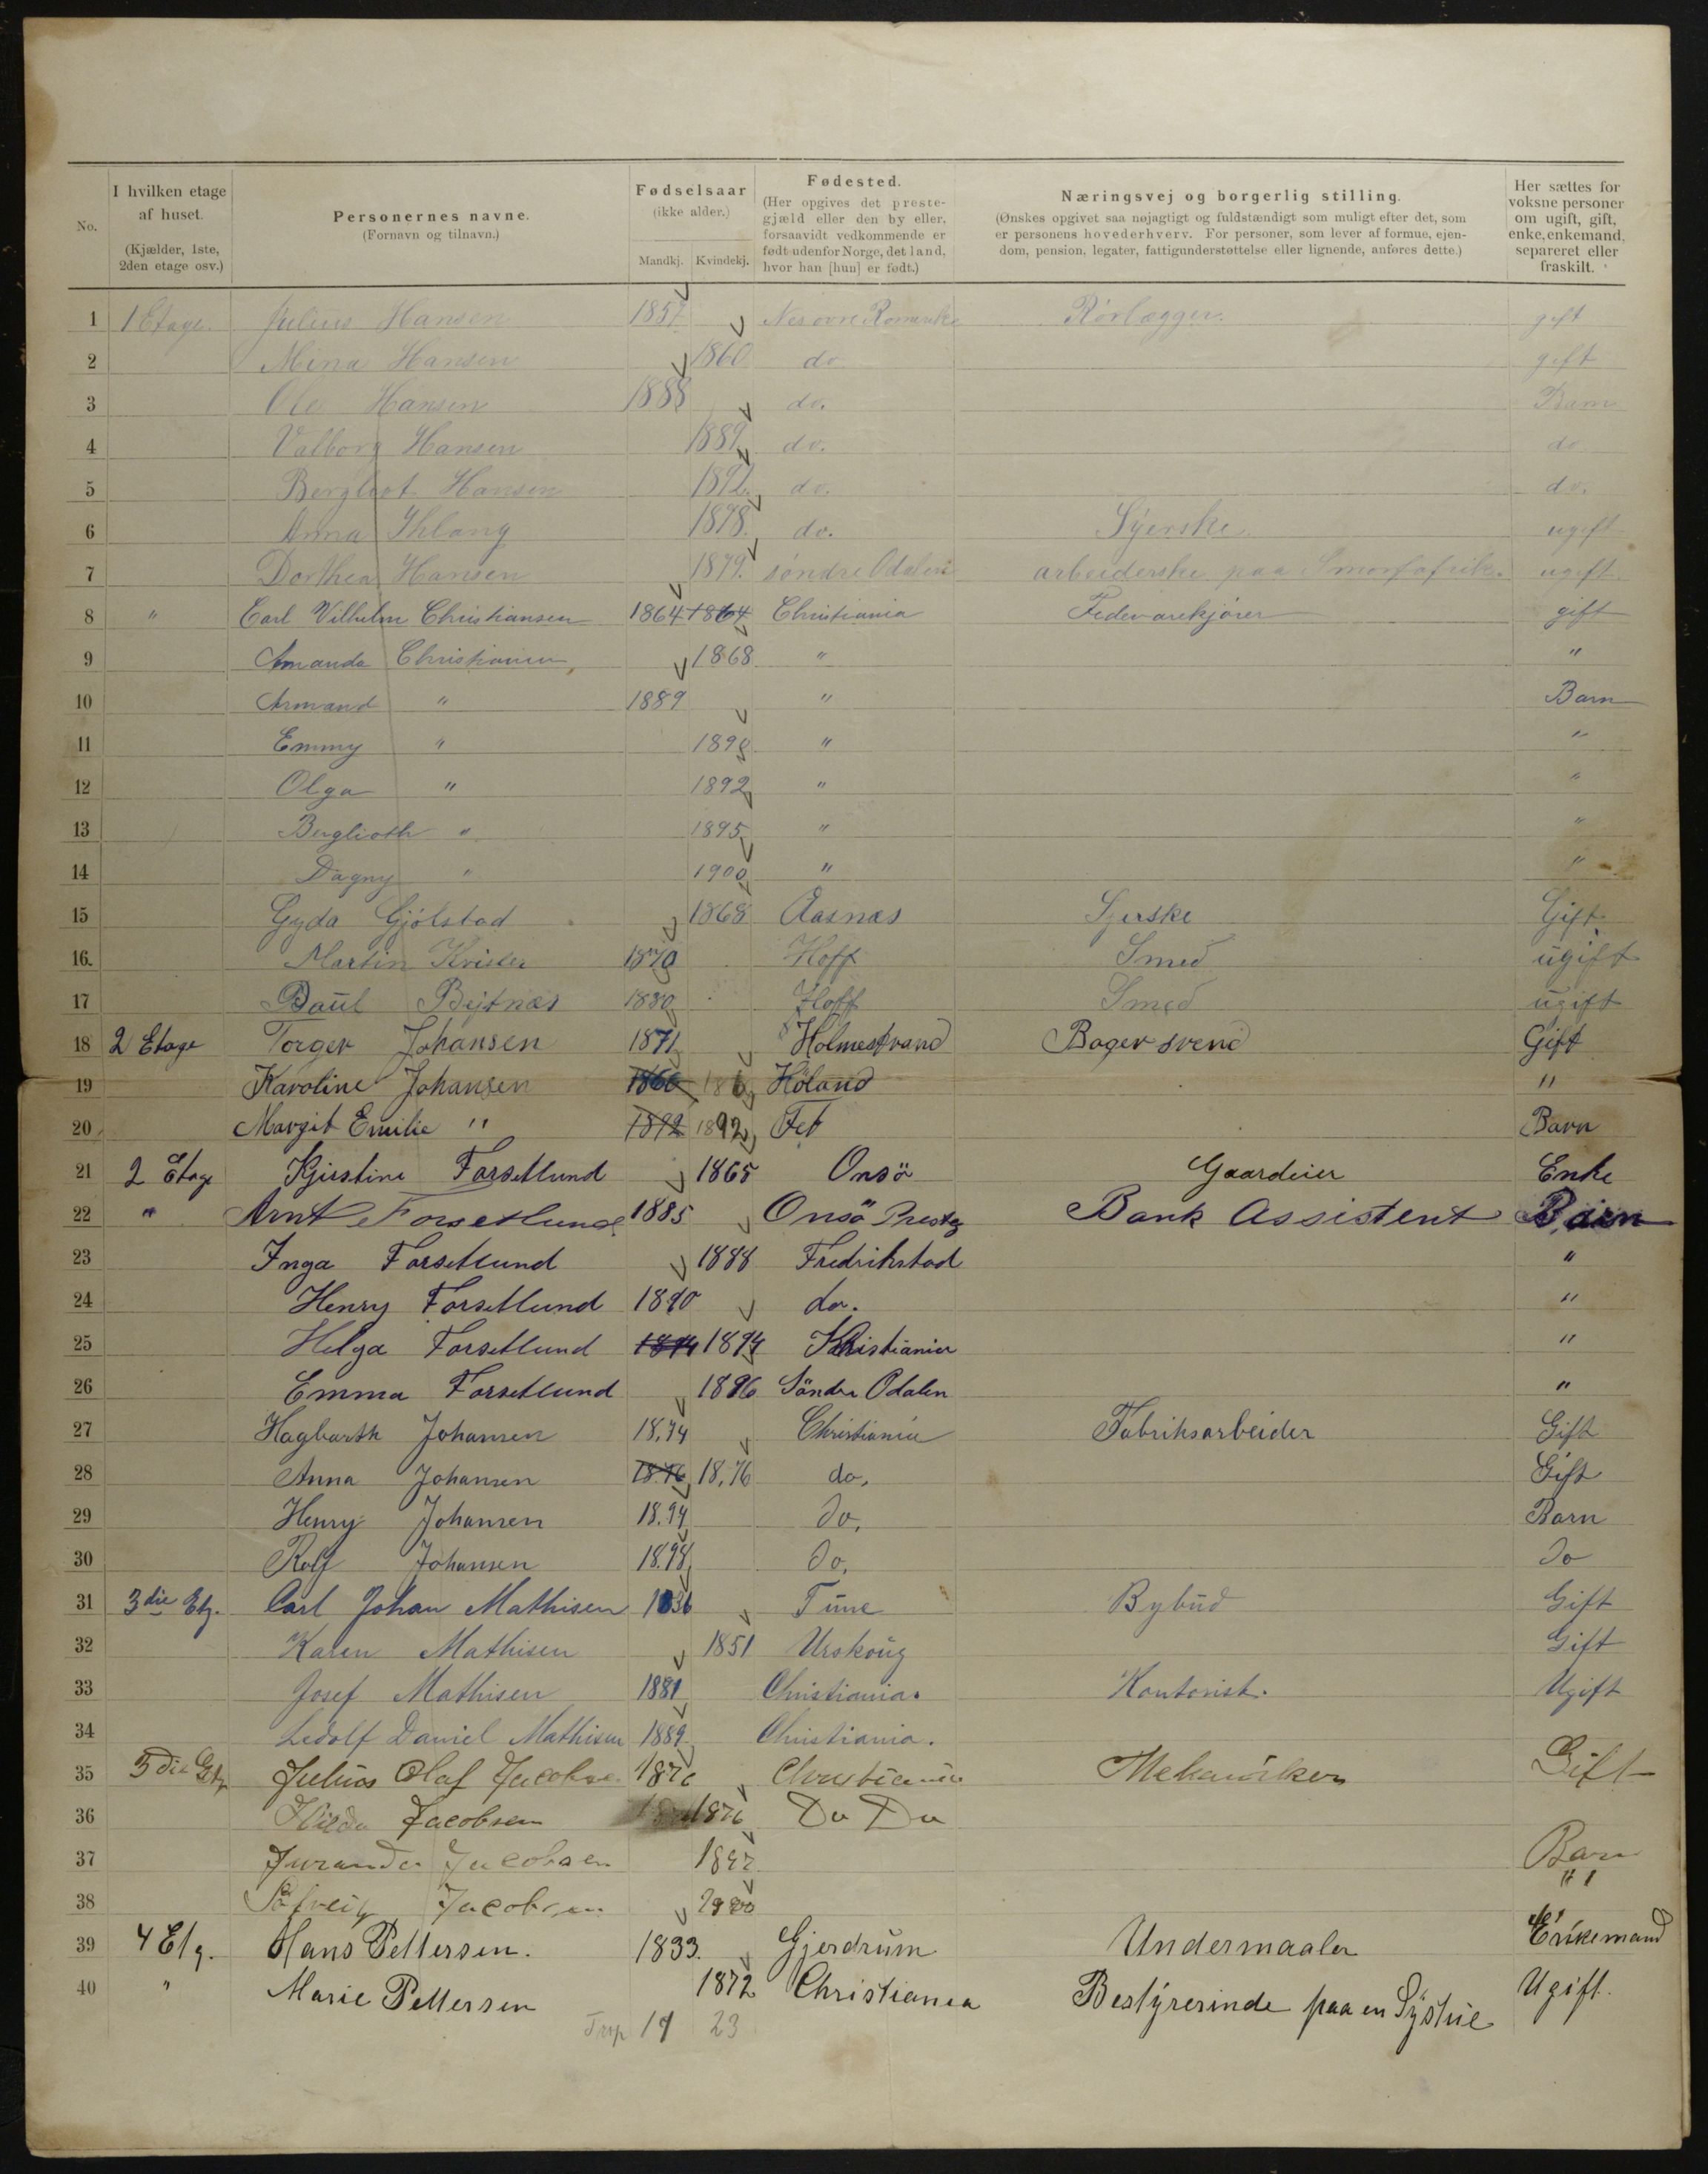 No.
I hvilken etage af huset.
(Kjælder, 1ste, 2den etage osv.)
Personernes navne.
(Fornavn og tilnavn.)
Fødselsaar
(ikke alder.)
Mandkj. Kvindekj.
Fødested.
(Her opgives det prestegjæld eller den by eller, forsaavidt vedkommende er født udenfor Norge, det land, hvor han [hun] er født.)
Næringsvej og borgerlig stilling.
(Ønskes opgivet saa nøjagtigt og fuldstændigt som muligt efter det, som er personens hovederhverv. For personer, som lever af formue, ejendom, pension, legater, fattigunderstøttelse eller lignende, anføres dette.)
Her sættes for voksne personer om ugift, gift, enke, enkemand, separeret eller fraskilt.
1 1 Etage. Julius Hansen 1857 Nes øvre Rørlægger. gift
2 Mina Hansen 1860 do gift
3 Ole Hansen 1888 do. Barn
4 Valborg Hansen 1889 do. do
5 Bergliot Hansen 1892. do. do.
6 Anna 1878. do. Syerske ugift
7 Dorthea Hansen 1879. søndre Odalen arbeiderske paa ugift.
8 " Carl Vilhelm Christiansen 1864 1864 Christiania Fedevarekjører gift
9 Amanda Christiansen, 1868 " "
10 Armand " 1889 " Barn
11 Emmy " " "
12 Olga " 1892 " "
13 Berglioth " 1895 " "
14 Dagny " 1900 " "
15 Gyda Gjölstad 1868 Aasnæs Syerske Gift
16. Martin 1870 Hoff Smed ugift
17 Paul 1880 Hoff Smed ugift
18 2 Etage Torger Johansen 1871 Holmestrand Bager svend Gift
19 Karoline Johansen 1860 Høland "
20 Margit Emilie " 1892 1892 Fet Barn
21 2 Etage Kjirstine Forsetlund 1865 Onsö Gaardeier Enke
22 " Arnt Forsetlund 1885 Onsö Prestg Bank Assistent Barn
23 Inga Forsetlund 1888 Fredrikstad "
24 Henry Forsetlund 1890 do. "
25 Helga Forsetlund 1894 1894 Khristiania "
26 Emma Forsetlund 1896 Söndre Odalen "
27 Hagbarth Johansen 18.74 Christiania Fabriksarbeider Gift
28 Anna Johansen 18.76 18.76 do. Gift
29 Henry Johansen 18.94 do. Barn
30 Rolf Johansen 18.98 do. do
31 3die Etg. Carl Johan Mathisen 1836 Tune Bybud Gift
32 Karen Mathisen 1851 Urskoug Gift
33 Josef Mathisen 1881 Christiania. Kontorist. Ugift
34 Ledolf Daniel Mathisen 1889 Christiania.
35 3die Etg Julius Olaf Jacobsen 1876 Christiania Mekaniker Gift
36 Hilda Jacobsen 1876 Do Do
37 Jacobsen 1897 Barn
38 Solveig Jacobsen 1900 "
39 4 Etg. Hans Pettersen. 1833. Gjerdrum Undermaaler Enkemand
40 " Marie Pettersen 1872 Christiania Bestyrerinde paa en Systue Ugift.
17 23